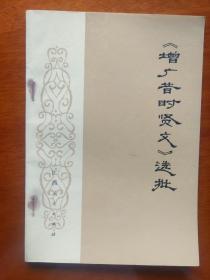 《增广昔时贤文》选批